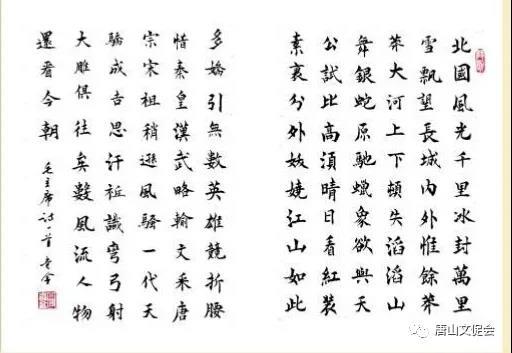 北國風光千里冰封萬里
雪飄望長城內外惟餘莽
莽大河上下頓失滔滔山
舞銀蛇原馳蠟象欲與天
公試比高須晴日看紅裝
素裹分外妖嬈江山如此
多嬌引無數英雄競折腰
惜秦皇漢武略輸文采唐
宗宋祖稍遜風騷一代天
驕成吉思汗祗識彎弓射
大雕俱往矣數風流人物
還看今朝
毛主席詩一首
唐山文促会